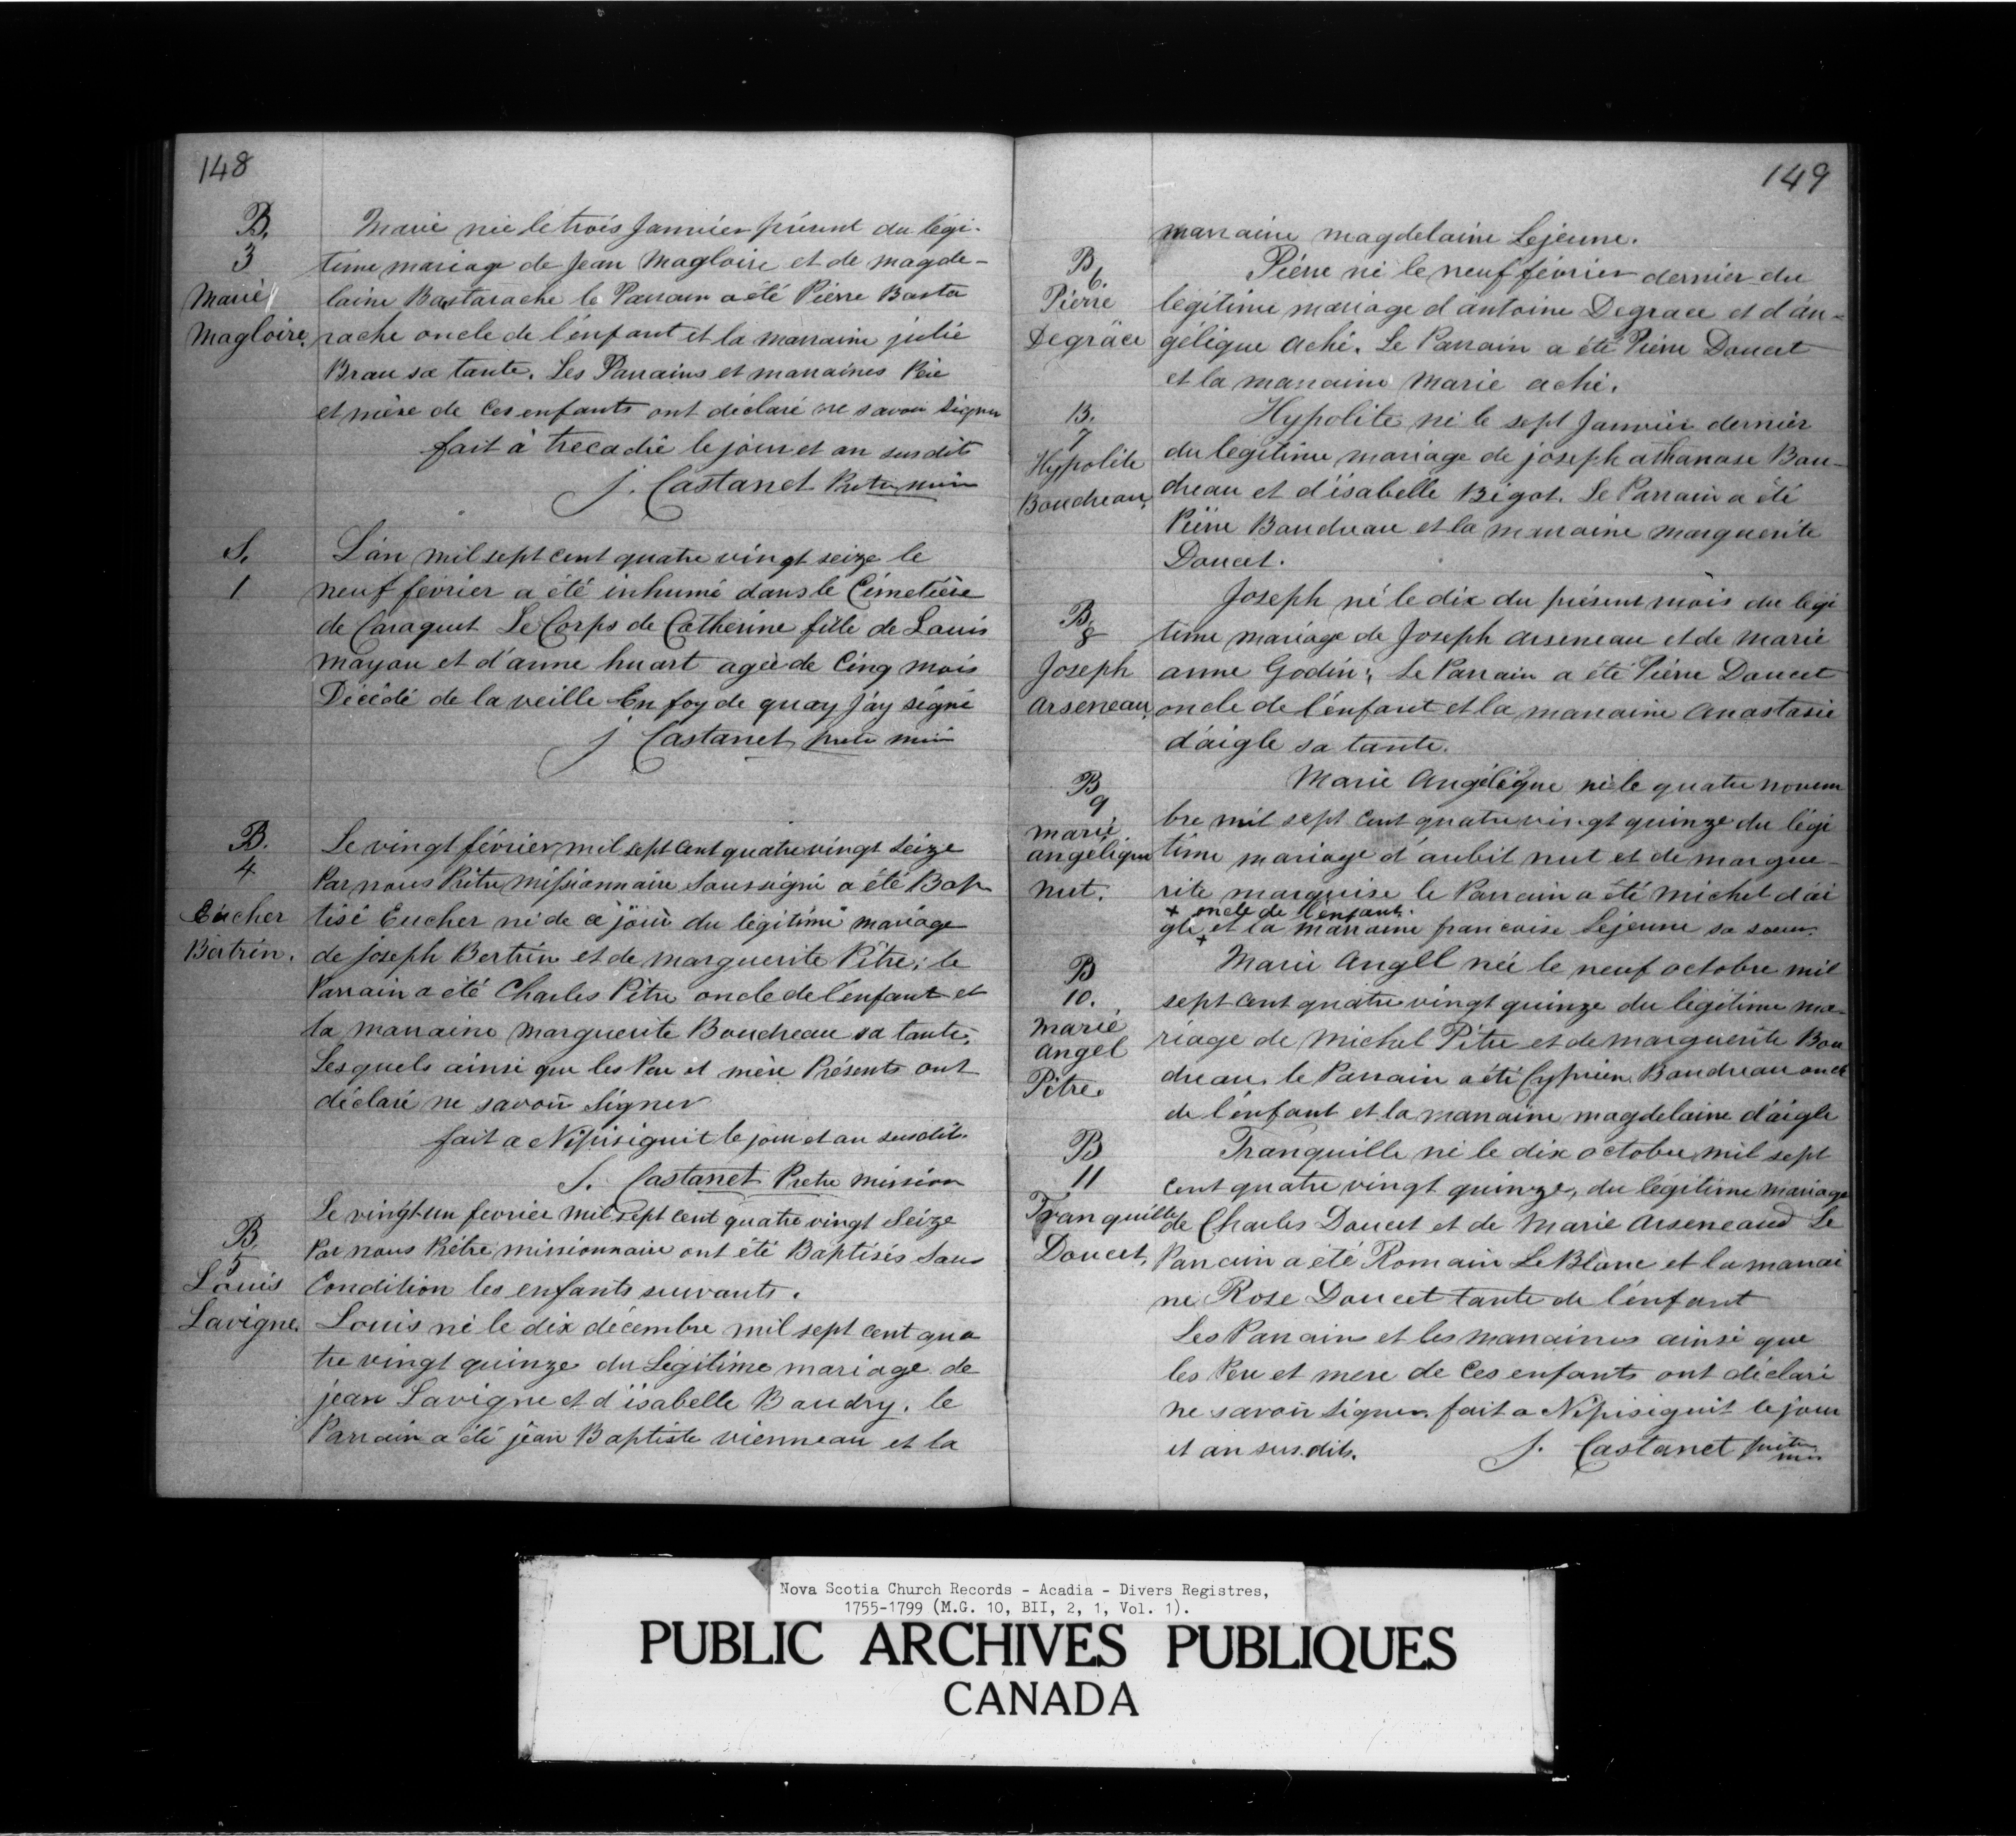 148
B.
3
Marie
Magloire.
Marie née le trois Janvier présent du légi-
time mariage de Jean Magloire et de Magde-
laine Bastarache le Parrain a été Pierre Basta
rache oncle de l'enfant et la marraine julie
Brau sa tante. Les Parrains et marraines Père
et mère de ces enfants ont déclaré ne savoir signer
fait à trecadie le jour et an susdits
J. Castanet Prêtre miss
S.
1
L'an mil sept cent quatre vingt seize le
neuf février a été inhumé dans le Cémetière
de Caraquet Le Corps de Catherine fille de Louis
mayou et d'anne huart agée de Cinq mois
Décédé de la veille En foy de quoy j'ay signé
J Castanet prete miss
B.
4
Eucher
Bertrin.
Le vingt février mil sept cent quatre vingt seize
Par nous Prêtre missionnaire Soussigné a été Bap
tisé Eucher né de ce jour du légitime mariage
de joseph Bertrin et de marguerite Pitre; le
Parrain a été Charles Pitre oncle de l'enfant et
la marraine marguerite Boudreau sa tante,
Lesquels ainsi que les Père et mère Présents ont
déclaré ne savoir Signer
fait a Nipisiguit le jour et an susdits.
J. Castanet Pretre mission
B.
5
Louis
Lavigne.
Le vingt un fevrier mil sept cent quatre vingt Seize
Par nous Prêtre missionnaire ont été Baptisés Sans
Condition les enfants suivants.
Louis né le dix décembre mil sept cent qua
tre vingt quinze du Légitime mariage de
jean Lavigne et d'isabelle Baudry. le
Parrain a été jean Baptiste vienneau et la
149
marraine magdelaine Lejeune.
B
6.
Pierre
Degrâce
Piérre né le neuf février dernier du
légitime mariage d'antoine Degrace et d'an-
gélique Aché. Le Parrain a été Piérre Doucet
et la marraine Marie aché.
B.
7
Hypolite
Boudreau.
Hypolite né le sept Janvier dernier
du legitime mariage de joseph athanase Bou-
dreau et d'isabelle Bigot. Le Parrain a été
Piérre Boudreau et la marraine marguerite
Doucet.
B.
8
Joseph
arseneau.
Joseph né le dix du présent mois du légi
time mariage de Joseph arseneau et de marie
anne Godin; Le Parrain a été Piérre Doucet
oncle de l'enfant et la marraine anastasie
d'aigle sa tante.
B
9
marie
angélique
nut.
Marie Angélique né le quatre novem
bre mil sept cent quatre vingt quinze du légi
time mariage d'aubit nut et de margue-
rite marquise le Parrain a été michel d'ai
+ oncle de l'enfant.
gle + et la marraine francoise Lejeune sa soeur.
B
10.
marie
angel
Pitre.
Marie Angel née le neuf octobre mil
sept cent quatre vingt quinze du légitime ma-
riage de Michel Pitre et de marguerite Bou
dreau. le Parrain a été Cyprien Boudreau oncle
de l'enfant et la marraine magdelaine d'aigle
B
11
Tranquille
Doucet,
Tranquille né le dix octobre mil sept
cent quatre vingt quinze, du légitime mariage
de Charles Doucet et de Marie Arseneaud Le
Parrain a été Romain LeBlanc et la marrai
ne Rose Doucet tante de l'énfant
Les Parrains et les marraines ainsi que
les Pere et mere de ces enfants ont déclaré
ne savoir signer. fait a Nipisiguit le jour
et an susdits. J. Castanet prêtre
miss
Nova Scotia Church Records - Acadia - Divers Registres,
1755-1799 (M.G. 10, BII, 2, 1, Vol. 1).
PUBLIC ARCHIVES PUBLIQUES
CANADA